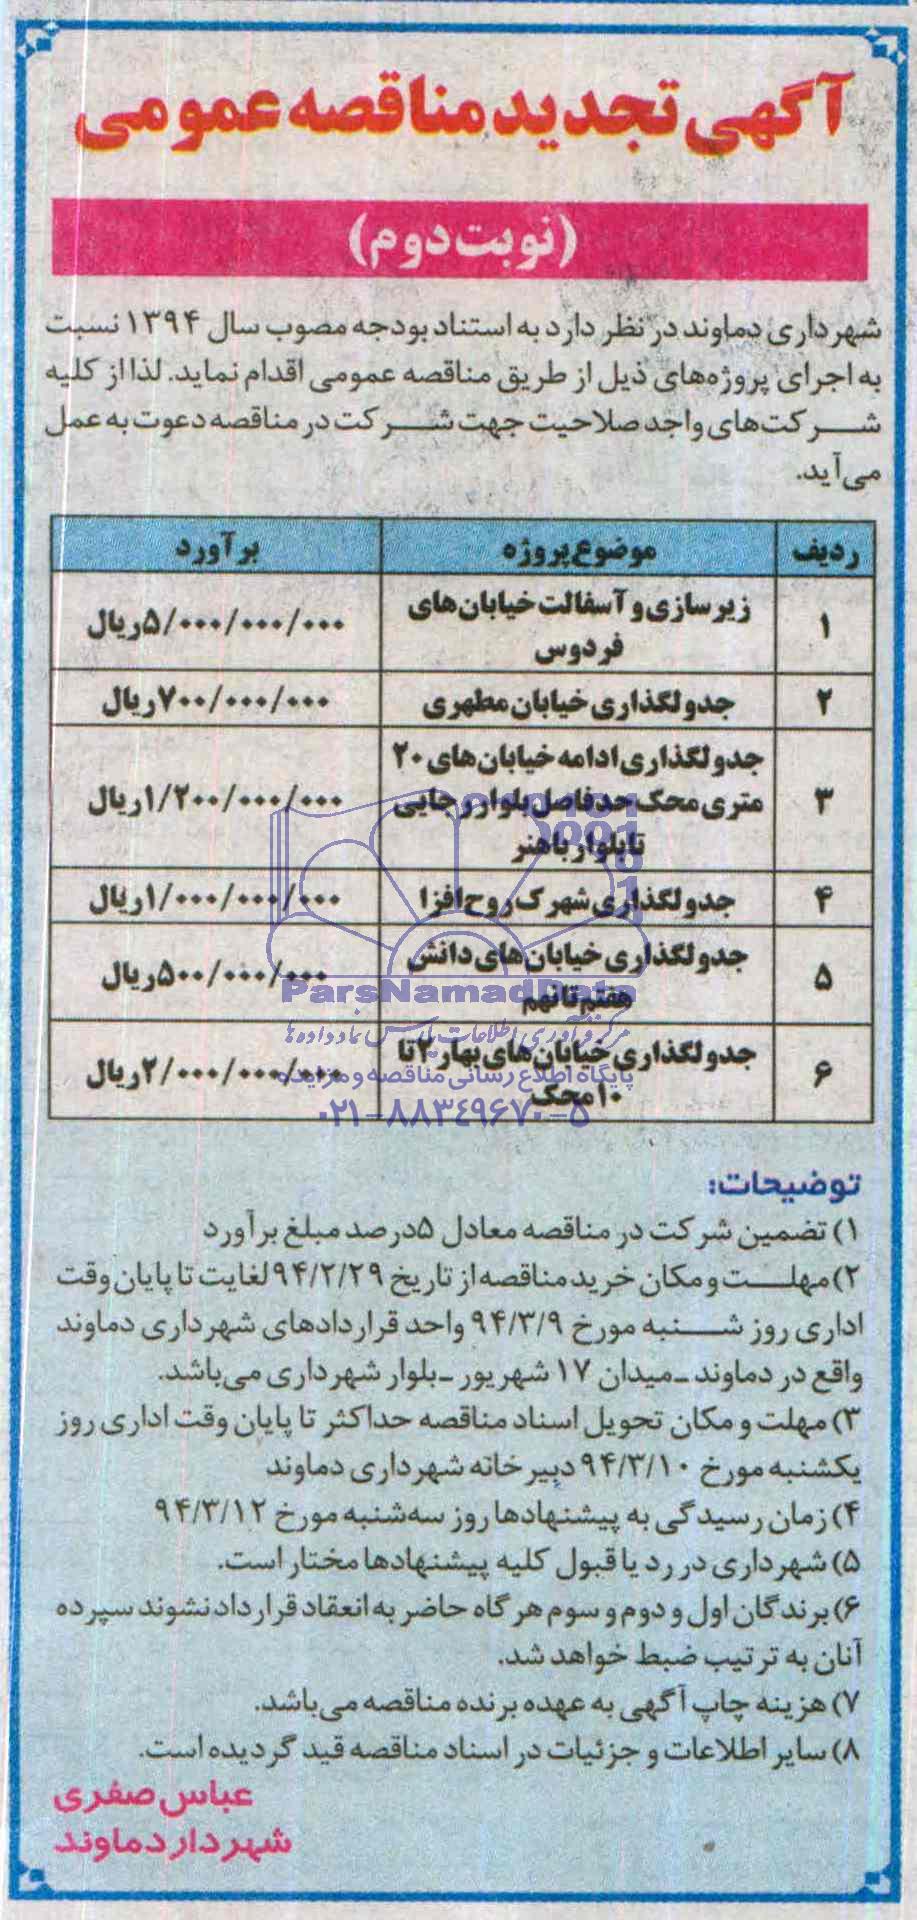 آگهی تجدید مناقصه عمومی
(نوبت دوم)
شهرداری دماوند در نظر دارد به استناد بودجه مصوب سال ۱۳۹۴ نسبت
به اجرای پروژه‌های ذیل از طریق مناقصه عمومی اقدام نماید. لذا از کلیه
شرکت‌های واجد صلاحیت جهت شرکت در مناقصه دعوت به عمل
می‌آید.
ردیف موضوع پروژه برآورد
۱ زیرسازی و آسفالت خیابان‌های فردوس ۵/۰۰۰/۰۰۰/۰۰۰ریال
۲ جدولگذاری خیابان مطهری ۷۰۰/۰۰۰/۰۰۰ریال
۳ جدولگذاری ادامه خیابان‌های ۲۰ متری محک حدفاصل بلوار رجایی تا بلوار باهنر ۱/۲۰۰/۰۰۰/۰۰۰ریال
۴ جدولگذاری شهرک روح‌افزا ۱/۰۰۰/۰۰۰/۰۰۰ریال
۵ جدولگذاری خیابان‌های دانش هفتم تا نهم ۵۰۰/۰۰۰/۰۰۰ریال
۶ جدولگذاری خیابان‌های بهار ۲ تا ۱۰ محک ۲/۰۰۰/۰۰۰/۰۰۰ریال
ParsNamadData
مرکز فرآوری اطلاعات پارس نماد داده‌ها
پایگاه اطلاع رسانی مناقصه و مزایده
۰۲۱-۸۸۳۴۹۶۷۰-۵
توضیحات:
۱) تضمین شرکت در مناقصه معادل ۵درصد مبلغ برآورد
۲) مهلت و مکان خرید مناقصه از تاریخ ۹۴/۲/۲۹ لغایت تا پایان وقت
اداری روز شنبه مورخ ۹۴/۳/۹ واحد قراردادهای شهرداری دماوند
واقع در دماوند ـ میدان ۱۷ شهریور ـ بلوار شهرداری می‌باشد.
۳) مهلت و مکان تحویل اسناد مناقصه حداکثر تا پایان وقت اداری روز
یکشنبه مورخ ۹۴/۳/۱۰ دبیرخانه شهرداری دماوند
۴) زمان رسیدگی به پیشنهادها روز سه‌شنبه مورخ ۹۴/۳/۱۲
۵) شهرداری در رد یا قبول کلیه پیشنهادها مختار است.
۶) برندگان اول و دوم و سوم هرگاه حاضر به انعقاد قرارداد نشوند سپرده
آنان به ترتیب ضبط خواهد شد.
۷) هزینه چاپ آگهی به عهده برنده مناقصه می‌باشد.
۸) سایر اطلاعات و جزئیات در اسناد مناقصه قید گردیده است.
عباس صفری
شهردار دماوند